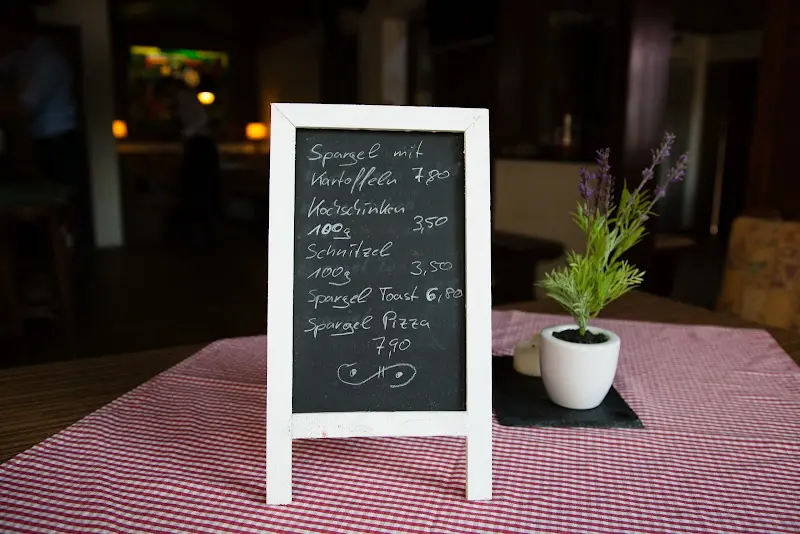 Spargel mit
Kartoffeln 7,80
Kochschinken
100g 3,50
Schnitzel
100g 3,50
Spargel Toast 6,80
Spargel Pizza
7,90